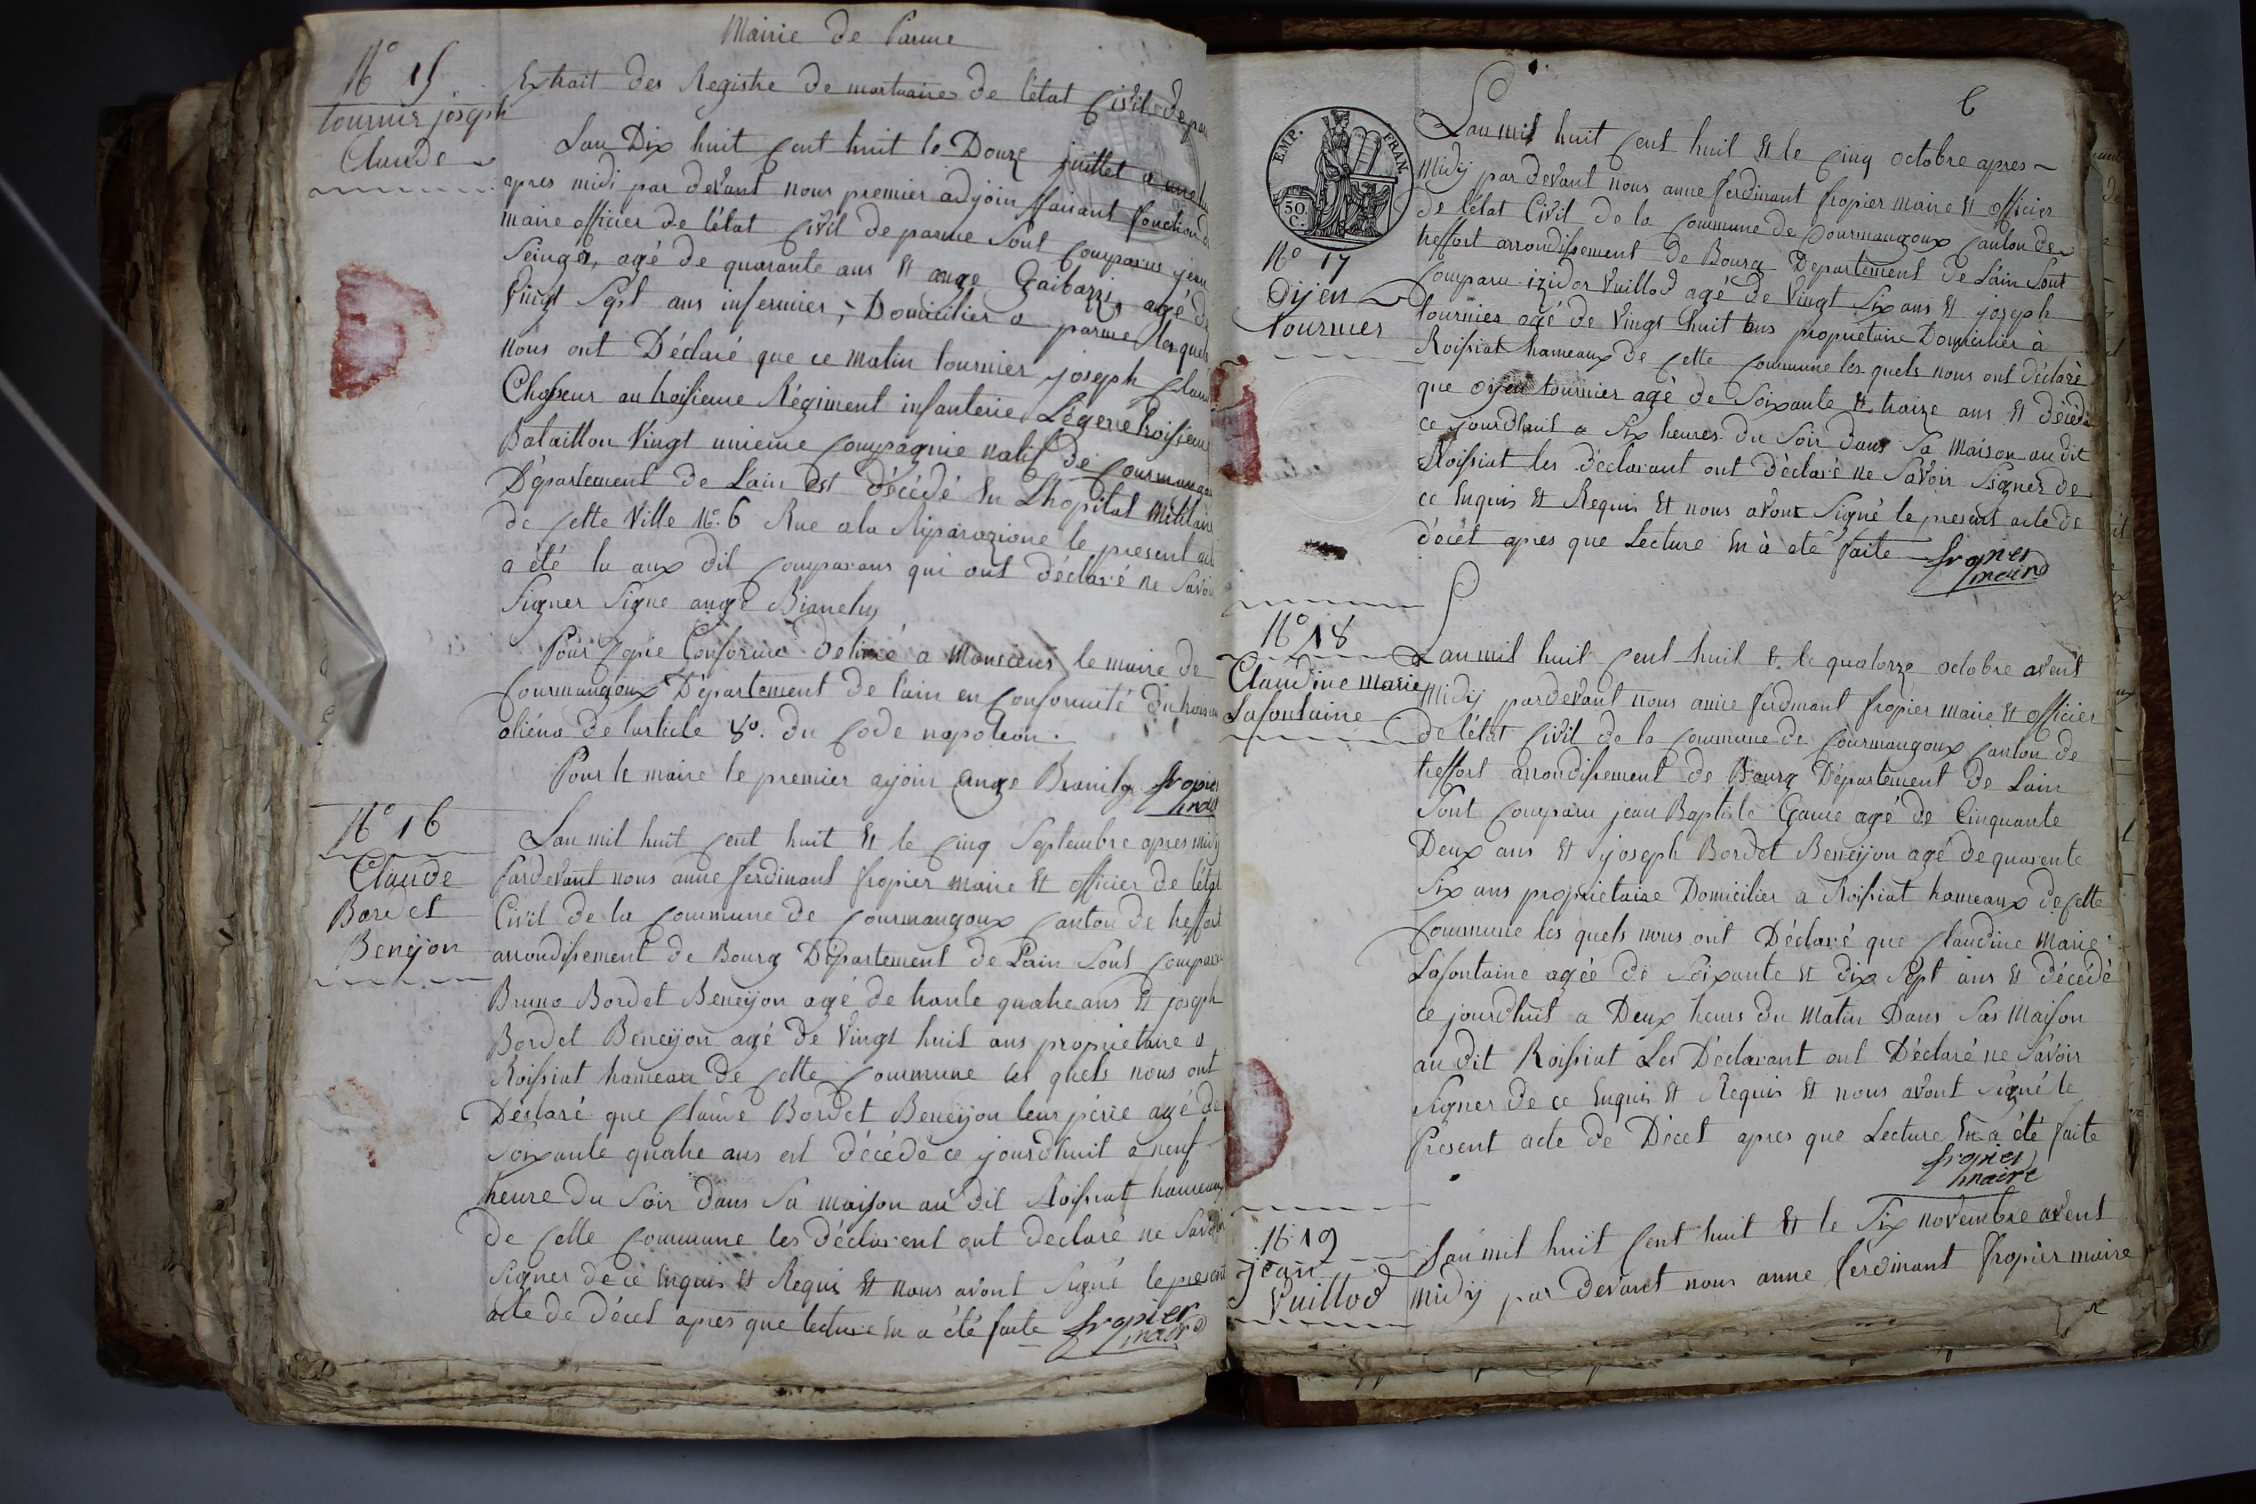 Mairie de Parme
N° 15
tournier joseph
Claude
Extrait des Registre de mortuaires de l'état Civil de par
Lan Dix huit Cent huit le Douze juillet a une
apres midi par devant nous premier adjoin faisant fonction d
maire officier de l'état Civil de parme Sont Comparus jean
Seinger, agé de quarante ans Et ange Gaibazzi agé de
Vingt Sept ans infermier, Domicilier a parme les quels
nous ont Déclaré que ce matin tournier joseph Claud
Chasseur au troisieme Régiment infanterie Légere troisieme
Bataillon Vingt unieme Compagnie natif de Courmangou
Département de Lain Est décédé En Lhopital Militaire
de Cette Ville N° 6 Rue ala Riparazione le present acte
a été lu aux dit Comparans qui ont déclaré ne Savoir
Signer Signe ange Bianchy
Pour Copie Conforme Delivré a Monsieur le maire de
Courmangoux Département de l'ain en Conformité du
aliéna de larticle 80. du Code napoleon.
Pour le maire le premier ajoin ange fropier
maire
N° 16
Claude
Bordet
Beneijon
Lan mil huit Cent huit Et le Cinq Septembre apres midy
Pardevant nous anne ferdinant fropier maire Et officier de l'état
Civil de la Commune de Courmangoux Canton de treffort
arrondissement de Bourg Département de Lain Sont Comparu
Bruno Bordet Beneijon agé de trante quatre ans Et joseph
Bordet Beneijon agé de Vingt huit ans proprietaire a
Roissiat hameau de Cette Commune les quels nous ont
Déclaré que Claude Bordet Beneijon leur pére agé de
Soixante quatre ans est décédé ce jourdhuit a neuf
heure du Soir dans Sa maison au dit Roissiat hameaux
de Cette Commune les déclarent ont declaré ne Savoir
Signer de ce Enquis Et Requis Et nous avont Signé le present
acte de Décet apres que lecture En a été faite fropier
maire
6
EMP. FRAN.
50 C.
N° 17
Oijen
tournier
Lan mil huit Cent huit Et le Cinq octobre apres
Midy par devant nous anne ferdinant fropier maire Et officier
de l'état Civil de la Commune de Courmangoux Canton de
treffort arrondissement de Bourg Departement de Lain Sont
Comparu izidor Vuillod agé de Vingt Six ans Et joseph
tournier agé de Vingt huit ans proprietaire Domicilier à
Roissiat hameaux de Cette Commune les quels nous ont déclaré
que oijen tournier agé de Soixante Et traize ans Et décédé
ce jourdhuit a Six heures du Soir dans Sa maison au dit
Roissiat les déclarant ont déclaré ne Savoir Signer de
ce Enquis Et Requis Et nous avont Signé le present acte de
décét apres que Lecture En à eté faite fropier
maire
N° 18
Claudine Marie
Lafontaine
Lan mil huit Cent huit Et le quatorze octobre avent
Midy pardevant nous anne ferdinant fropier maire Et officier
de l'état Civil de la Commune de Courmangoux Canton de
treffort arrondissement de Bourg Département de Lain
Sont Comparu jean Baptiste Game agé de Cinquante
Deux ans Et joseph Bordet Beneijon agé de quarente
Six ans proprietaire Domicilier a Roissiat hameaux de Cette
Commune les quels nous ont Déclaré que Claudine Marie
Lafontaine agée de Soixante Et dix Sept ans Et décédé
ce jourdhuit a Deux heures du Matin Dans Sas Maison
au dit Roissiat Les Déclarant ont Déclaré ne Savoir
Signer de ce Enquis Et Requis Et nous avont Signé le
Present acte de Décet apres que Lecture En a été faite
fropier
maire
N° 19
jean
Vuillod
Lan mil huit Cent huit Et le Six novembre avent
midy par devant nous anne ferdinant fropier maire